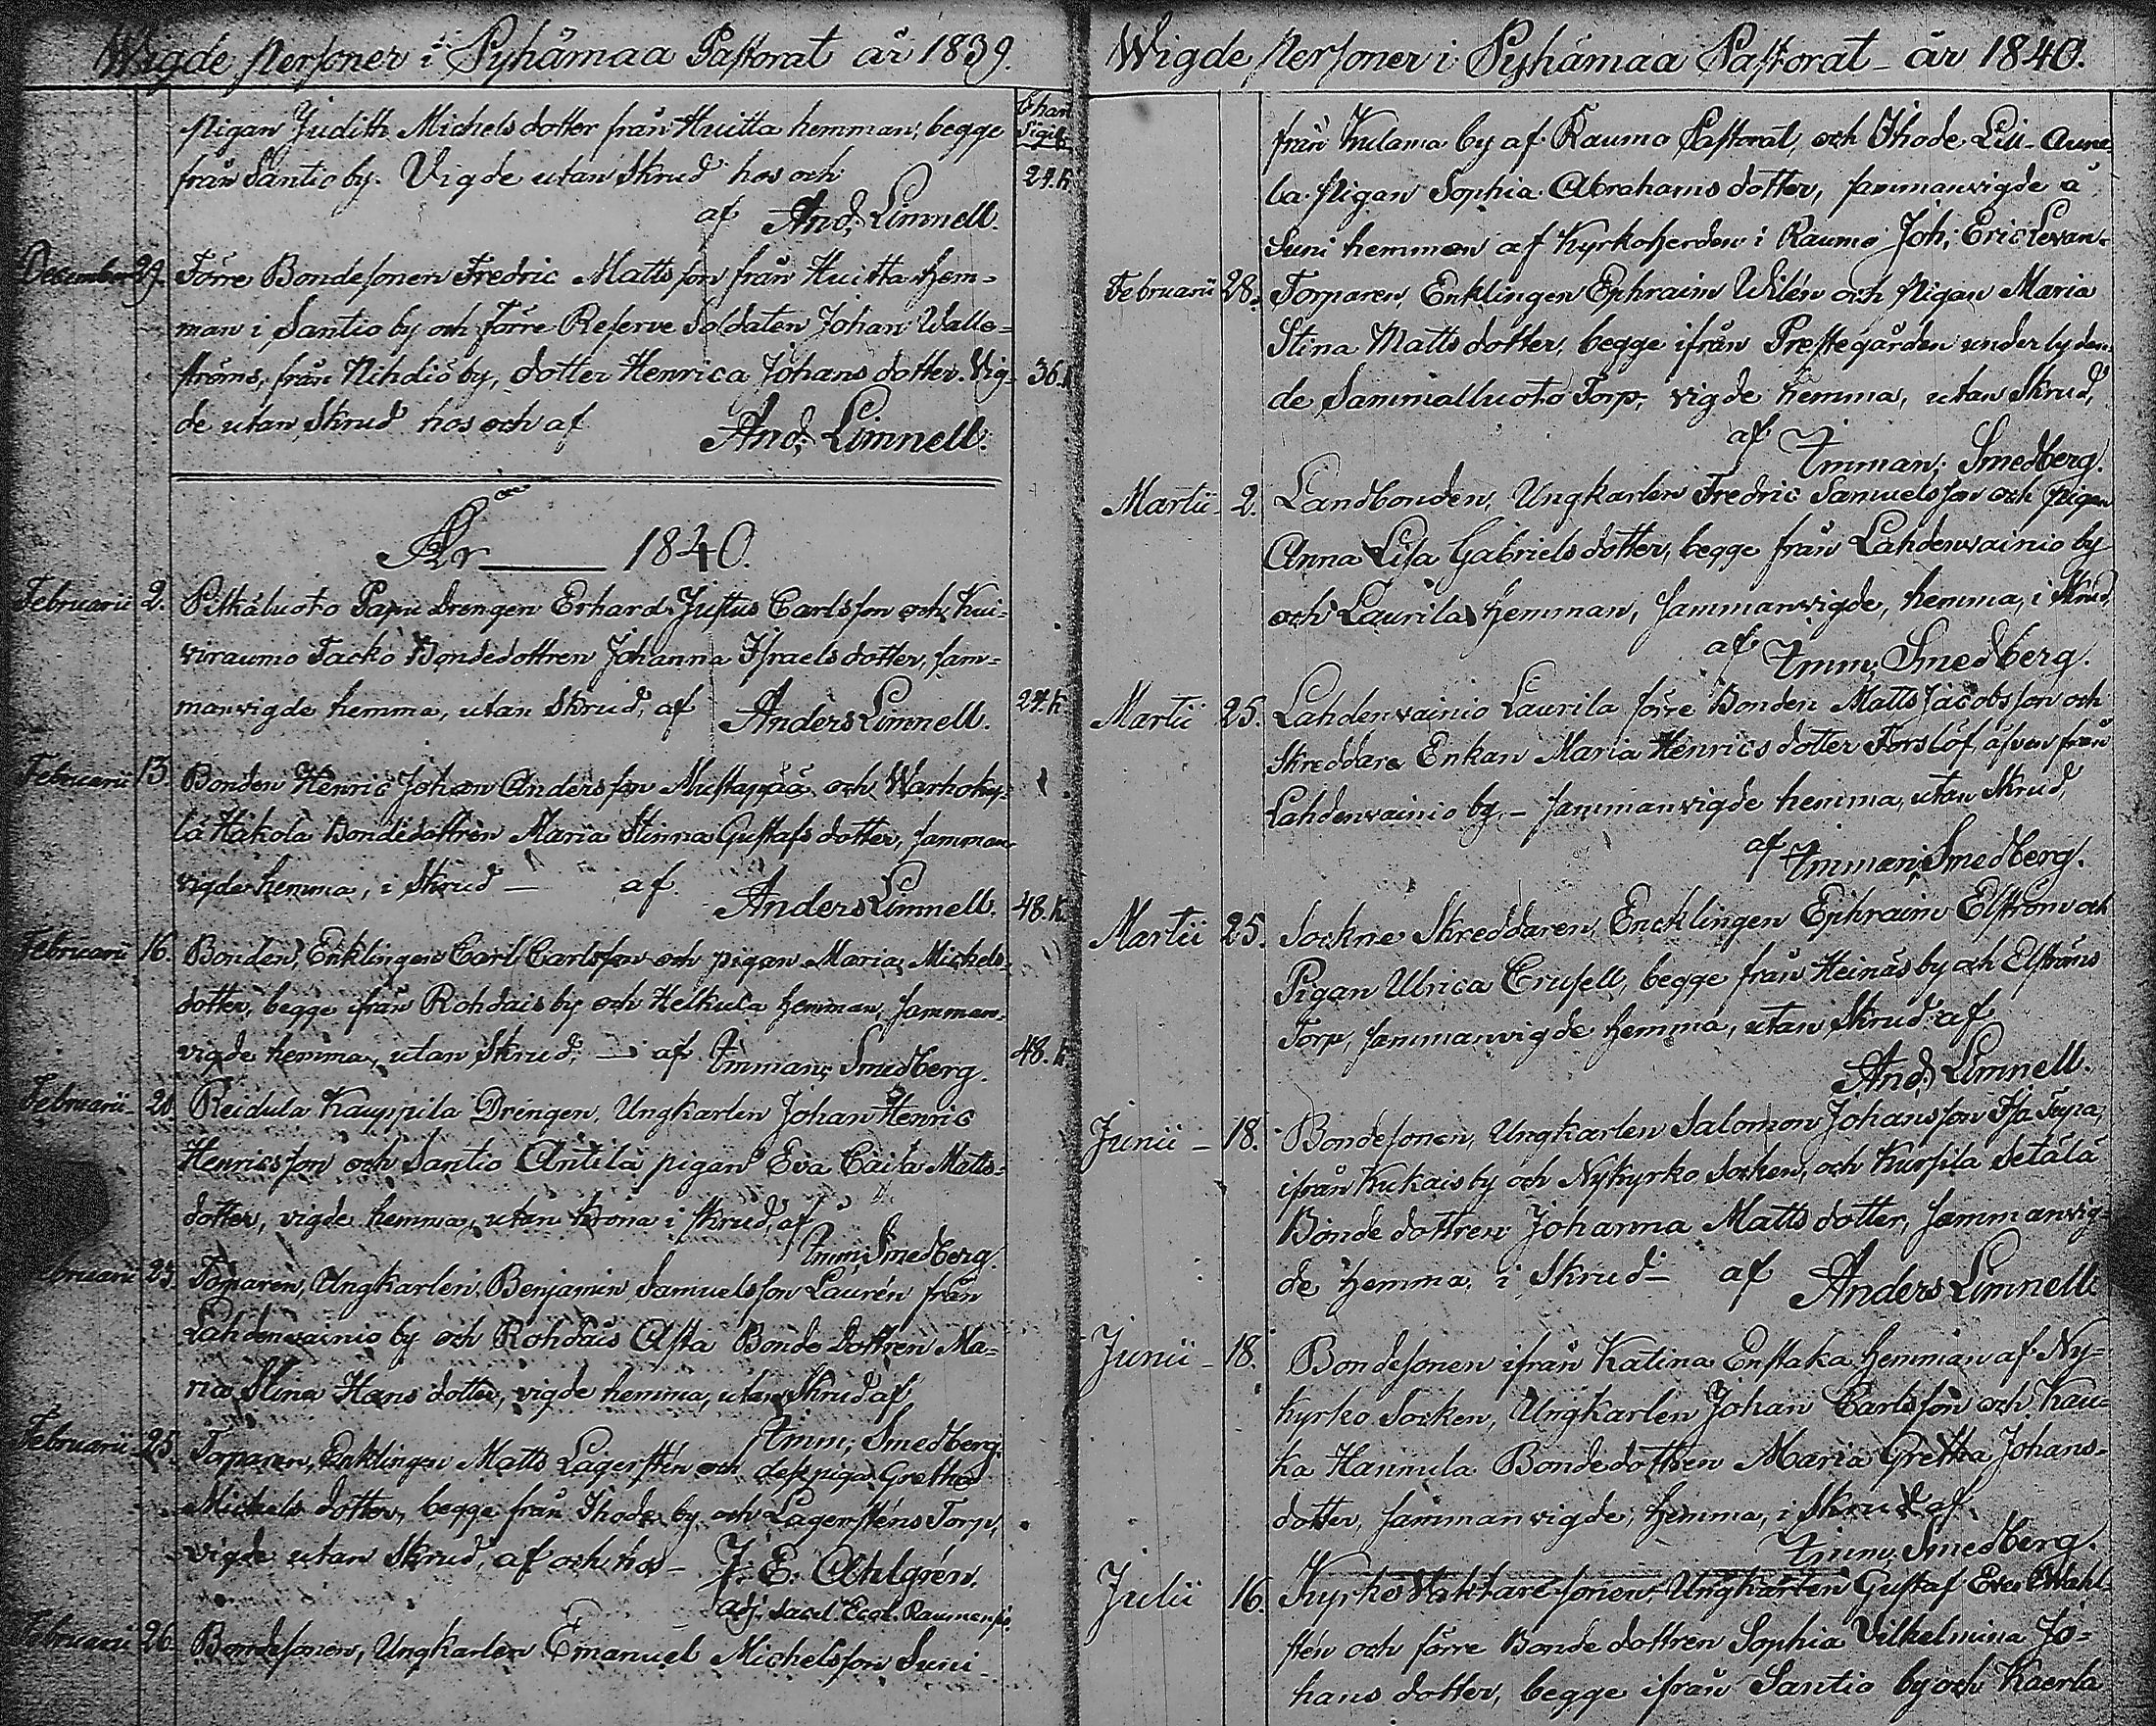 Wigde personer i Pyhämaa Pastorat år 1839.
pigan Judith Michelsdotter från Huitta hemman, begge
från Santio by. Vigde utan Skrud hos och
24.k
af And. Limnell.
December 29. Förre Bondesonen Fredric Mattsson från Huitta hem-
man i Santio by och förre Reserve Soldaten Johan Walls-
ströms, från Nihdiö by, dotter Henrica Johansdotter. Vig- 36.k
de utan Skrud hos och af And. Limnell.
År 1840.
Februarii 2. Pitkäluoto Papu drengen Erhard Justus Carlsson och Kui-
viraumo Jacko Bondedottren Johanna Israelsdotter, sam-
manvigde hemma, utan Skrud, af Anders Limnell. 24.k
Februarii 13. Bonden Henric Johan Andersson Mustapää och Warhoky-
lä Häkola Bondedottren Maria Stinna Gustafsdotter, samman-
vigde hemma, i Skrud – af Anders Limnell. 48.k
Februarii 16. Bonden, Enklingen Carl Carlsson och pigan Maria Michels-
dotter, begge ifrån Rohdais by och Helkula hemman, samman-
vigde hemma, utan Skrud, – af Imman; Smedberg. 48.k
Februarii 20. Reidula Kauppila Drengen, Ungkarlen Johan Henric
Henricsson och Santio Antila pigan Eva Caisa Matts-
dotter, vigde hemma, utan krona i skrud, af
Imm; Smedberg.
Februarii 23. Torparen, Ungkarlen, Benjamin Samuelsson Laurén från
Lahdenvainio by och Rohdais Asta Bonde Dottren Ma-
ria Stina Hansdotter, vigde hemma, utan Skrud af
Imm; Smedberg.
Februarii 25. Torparen, Enklingen Matts Lagerstén och dess piga Gretha
Michelsdotter, begge från Ihode by och Lagersténs Torp,
vigde utan Skrud, af och hos – J. E. Ahlgrén.
adj. Sacell. Eccl. Raumensis.
Februarii 26. Bondesonen, Ungkarlen Emanuel Michelsson Suni
Wigde personer i Pyhämaa Pastorat – år 1840.
från Kulama by af Raumo Pastorat, och Ihode Lill-Aune-
la pigan Sophia Abrahamsdotter, sammanvigde å
Suni hemman af Kyrkoherden i Raumo Joh; Eric Levan.
Februarii 28. Torparen, Enklingen Ephraim Wilén och pigan Maria
Stina Mattsdotter, begge ifrån Prestegården underlyden-
de Sammalluoto Torp, vigde hemma, utan Skrud,
af Imman; Smedberg.
Martii – 2. Landbonden, Ungkarlen Fredric Samuelsson och pigan
Anna Lisa Gabrielsdotter, begge från Lahdenvainio by
och Laurila hemman, sammanvigde, hemma, i Skrud
af Imm; Smedberg.
Martii 25. Lahdenvainio Laurila förre Bonden Matts Jacobsson och
Skreddare Enkan Maria Henricsdotter Forslöf, äfven från
Lahdenvainio by, – sammanvigde hemma, utan Skrud,
af Imman; Smedberg.
Martii 25. Sockne Skreddaren, Encklingen Ephraim Elfström och
Pigan Ulrica Crusell, begge från Heinäs by och Elfströms
Torp, sammanvigde hemma, utan Skrud af
And. Limnell.
Junii – 18. Bondesonen, Ungkarlen Salomon Johansson
ifrån Kukais by och Nykyrko Socken, och Kursila Setälä
Bonde dottren Johanna Mattsdotter, sammanvig-
de hemma, i Skrud – af Anders Limnell
Junii – 18. Bondesonen ifrån Katina Enstaka hemman af Ny-
kyrko Socken, Ungkarlen Johan Carlsson och Kau-
ka Hannula Bondedottren Maria Gretha Johans-
dotter, sammanvigde, hemma, i Skrud af
Imm; Smedberg.
Julii 16. Kyrko Vaktare sonen, Ungkarlen Gustaf Wahl-
stén och förre Bonde dottren Sophia Vilhelmina Jo-
hansdotter, begge ifrån Santio by och Kaerla